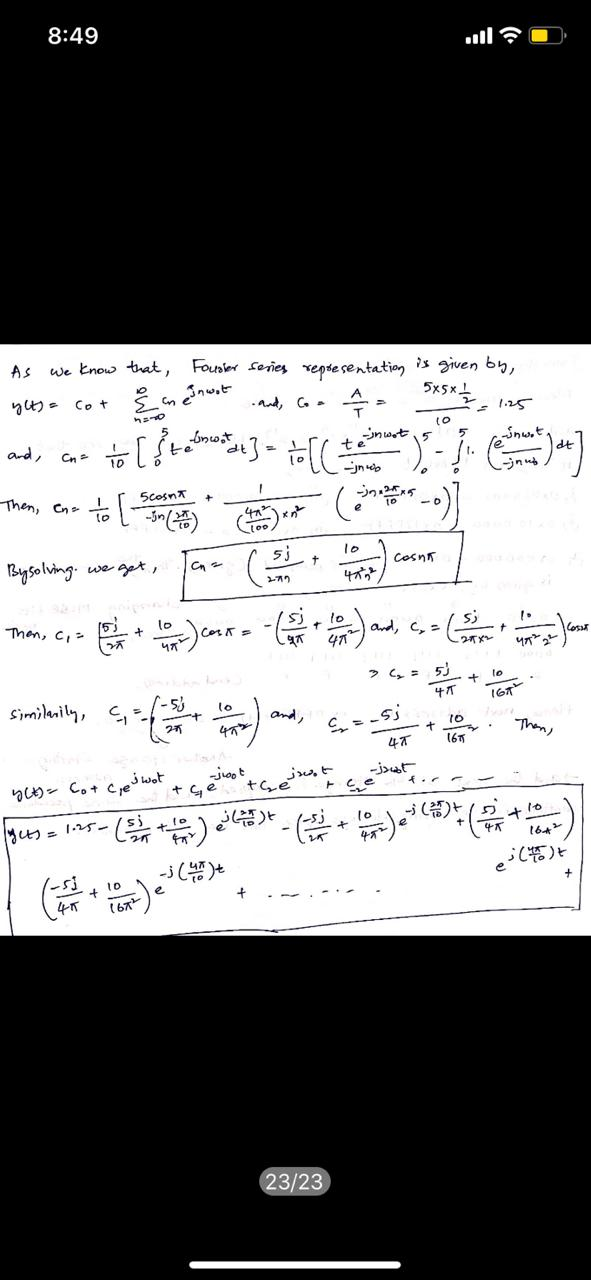 8:49
As we know that, Fourier series representation is given by,
y(t) = C₀ + ∑_{n=-∞}^{∞} cₙ e^{jnω₀t} and, C₀ = A/T = (5×5×1/2)/10 = 1.25
and, Cₙ = 1/10 [∫₀⁵ t e^{-jnω₀t} dt] = 1/10 [(t e^{-jnω₀t}/-jnω₀)₀⁵ - ∫₀⁵ 1. (e^{-jnω₀t}/-jnω₀) dt]
Then, Cₙ = 1/10 [5cosnπ/(-jn(2π/10)) + 1/((4π²/100)×n²) (e^{-jn×2π/10×5} - 0)]
By solving. we get, Cₙ = (5j/2πn + 10/4π²n²) cosnπ
Then, C₁ = [5j/2π + 10/4π²) cosπ = -(5j/2π + 10/4π²) and, C₂ = (5j/2π×2 + 10/4π²2²) cos2π
⇒ C₂ = 5j/4π + 10/16π².
Similarily, C₋₁ = -(-5j/2π + 10/4π²) and, C₋₂ = -5j/4π + 10/16π². Then,
y(t) = C₀ + C₁e^{jω₀t} + C₋₁e^{-jω₀t} + C₂e^{j2ω₀t} + C₋₂e^{-j2ω₀t} + . - - -
y(t) = 1.25 - (5j/2π + 10/4π²) e^{j(2π/10)t} - (-5j/2π + 10/4π²) e^{-j(2π/10)t} + (5j/4π + 10/16π²)
e^{j(4π/10)t} +
(-5j/4π + 10/16π²) e^{-j(4π/10)t} + . . - . - . .
23/23